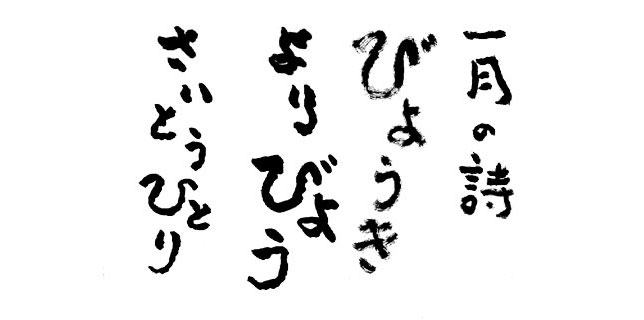 一月の詩
びょうき
よりびょう
さいとうひとり